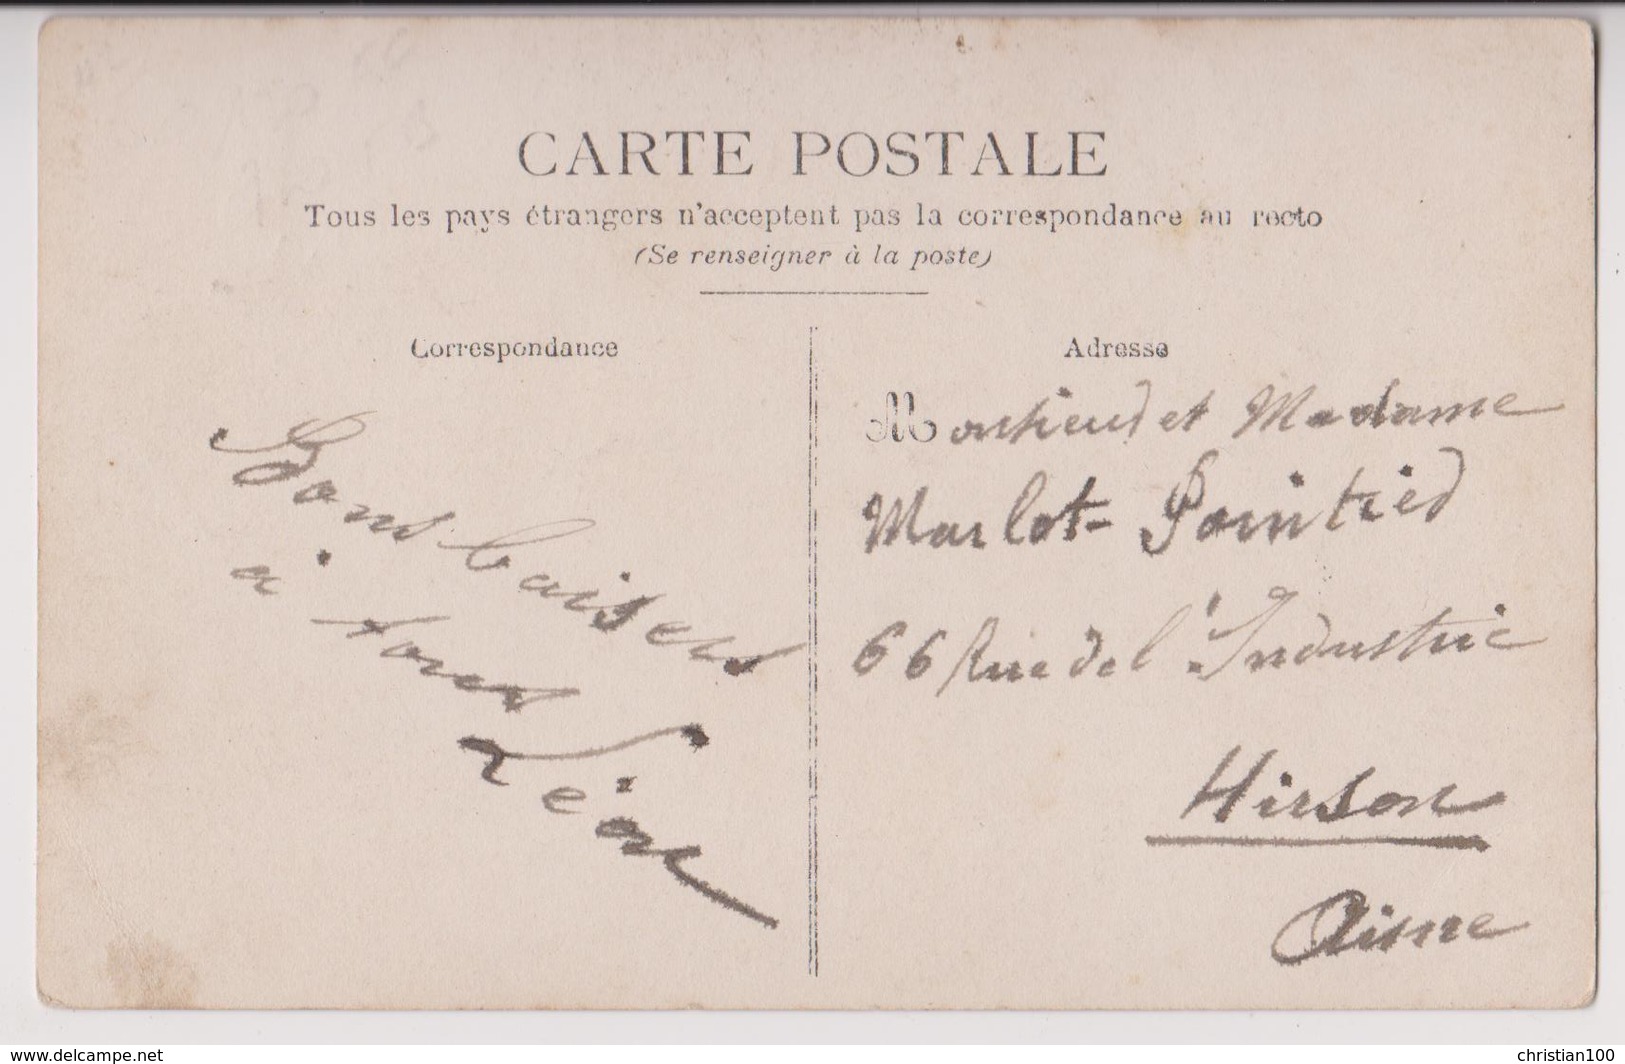 CARTE POSTALE
Tous les pays étrangers n'acceptent pas la correspondance au recto
(Se renseigner à la poste)
Correspondance
Adresse
Bons baisers
à tous
Léon
Monsieur et Madame
Marlot-Pointier
66 Rue de l'Industrie
Hirson
Aisne
www.delcampe.net
christian100